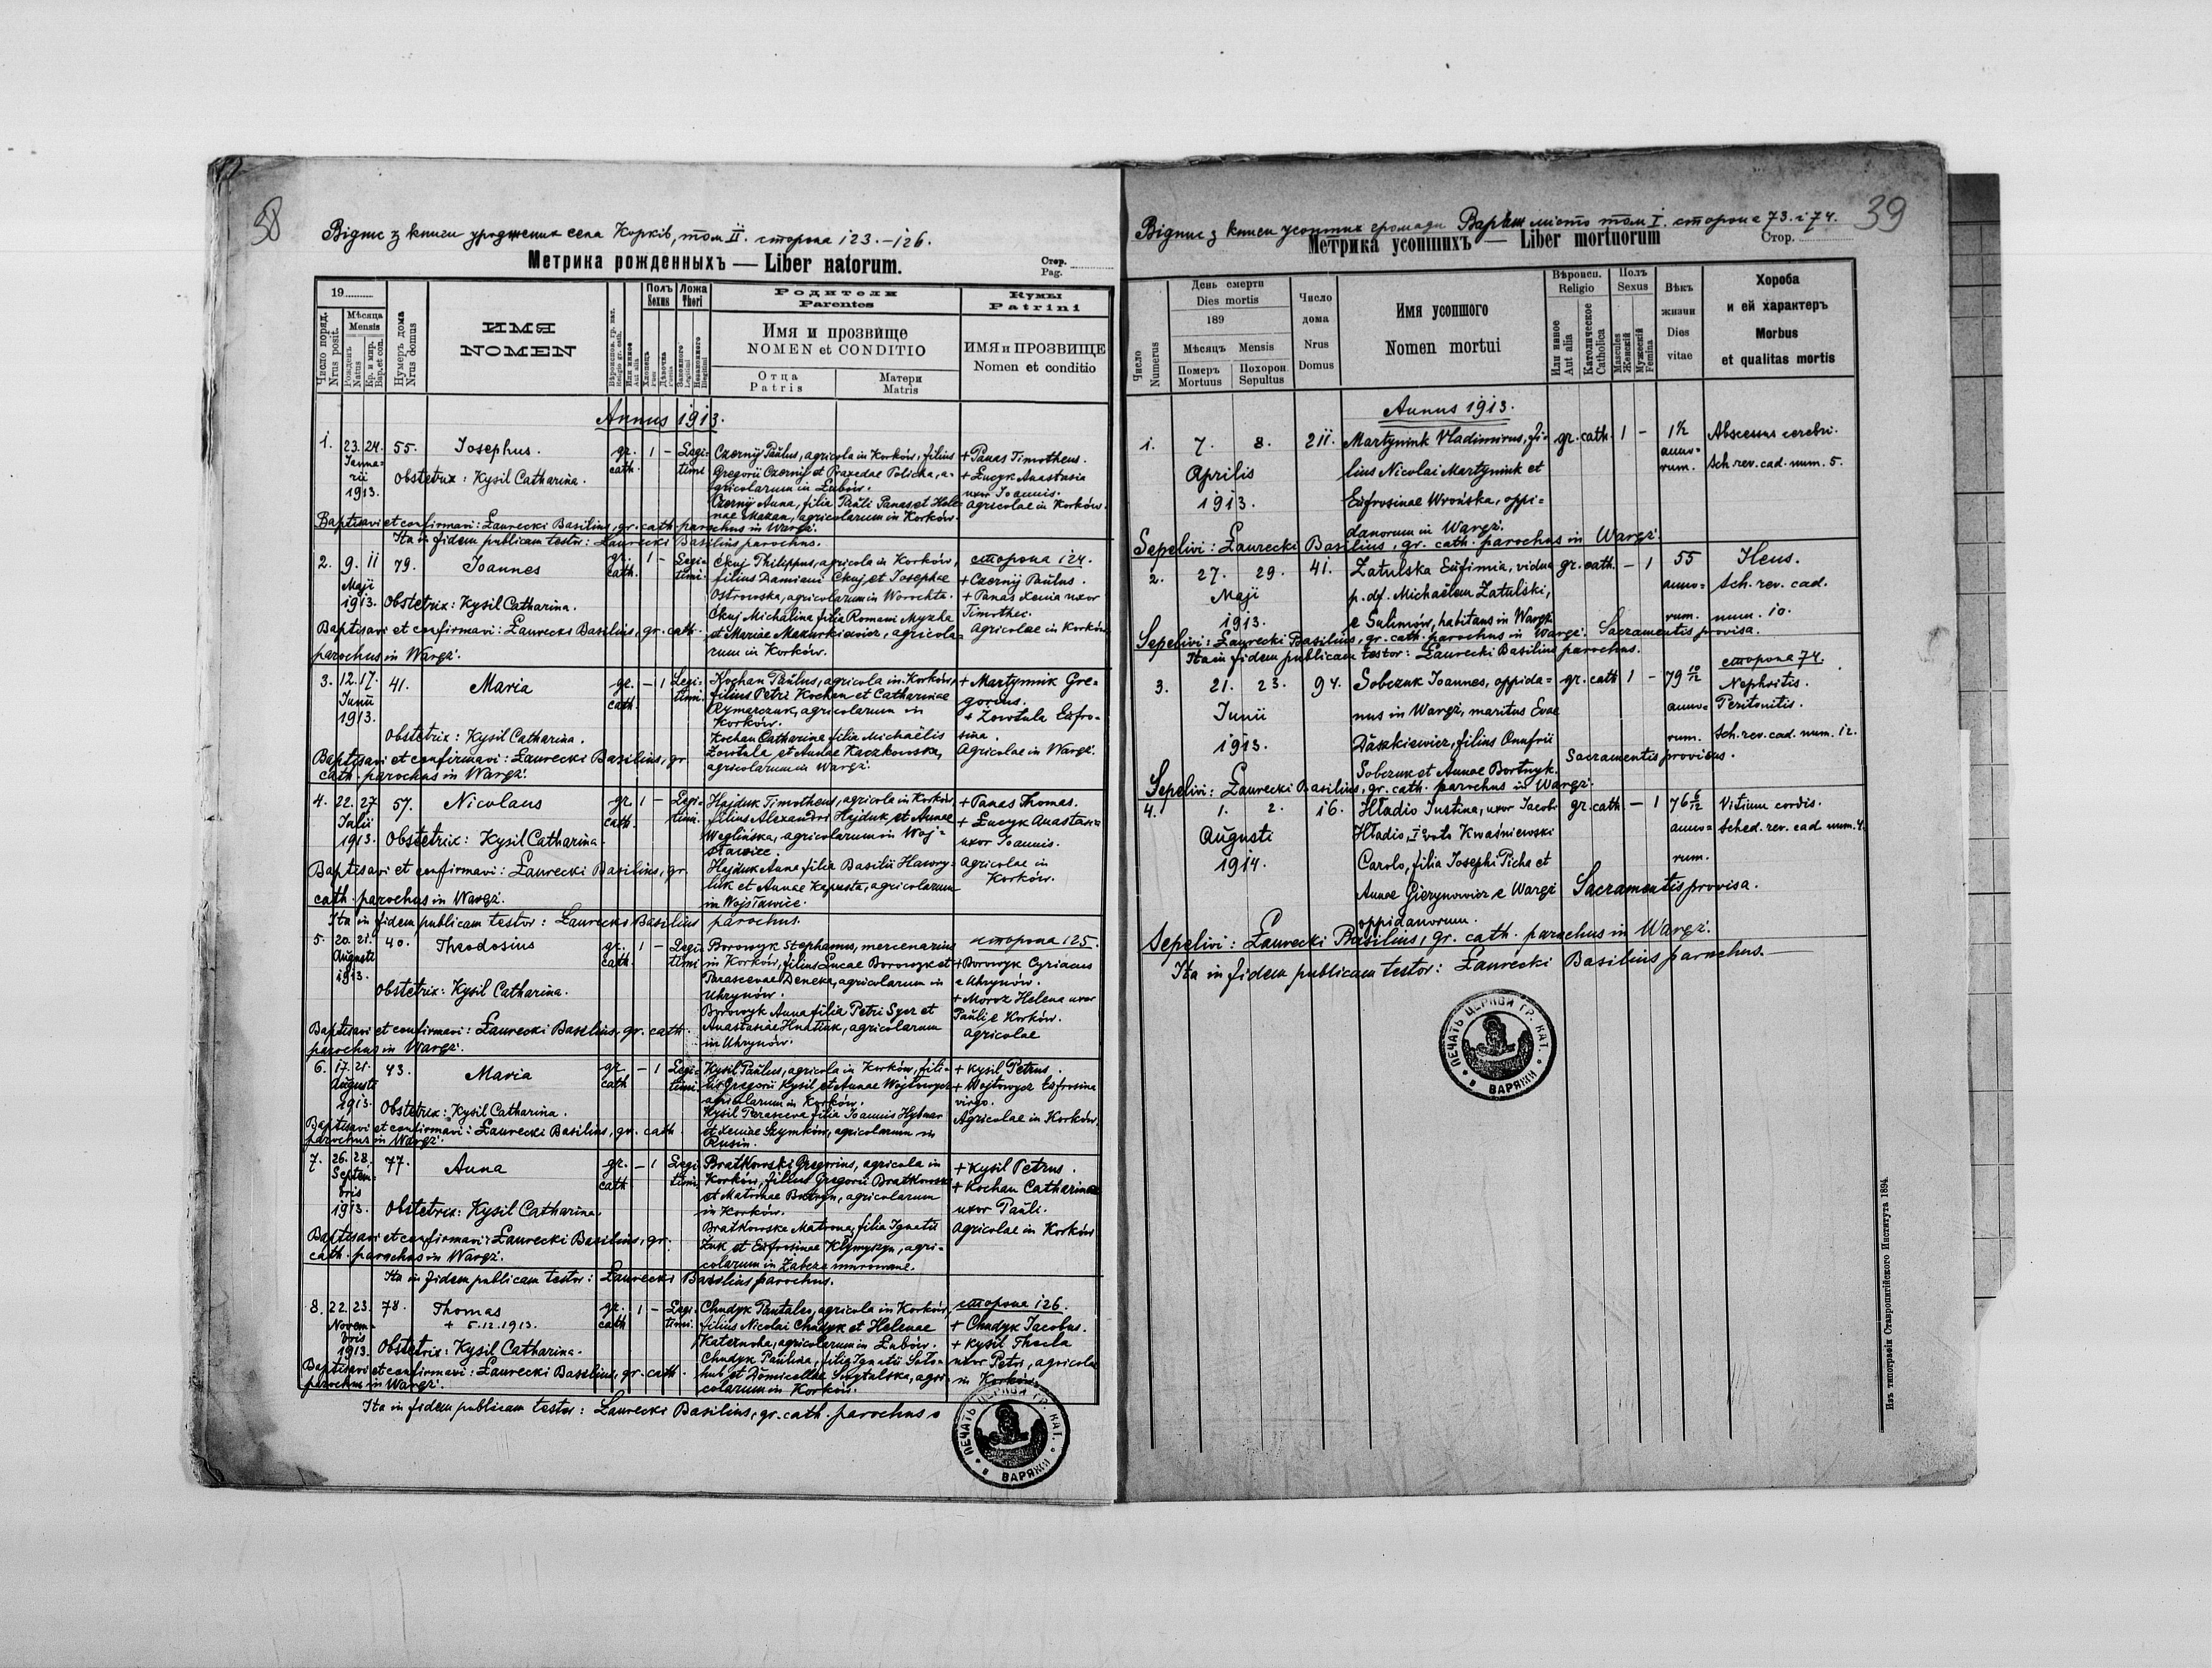 58
Відпис з книги уродження села Корків, том II. сторона 123.–126.
Метрика рожденныхъ — Liber natorum.
Стор.
Pag.
19
Число поряд.
Nrus posit.
Мѣсяца
Mensis
Рожденъ
Natus
Кр. и мир.
Bap. et con.
Нумеръ дома
Nrus domus
ИМЯ
NOMEN
Полъ
Sexus
Ложа
Thori
Родители
Parentes
Имя и прозвище
NOMEN et CONDITIO
Отца
Patris
Матери
Matris
Кумы
Patrini
ИМЯ и ПРОЗВИЩЕ
Nomen et conditio
Annus 1913.
1. 23. 24. Januarii 1913. 55. Josephus. gr. cath. 1 – Legitimi
Obstetrix: Kysil Catharina.
Czernij Paŭlus, agricola in Korków, filius
Gregorii Czernij et Praxedae Policha, a-
gricolarum in Łubów.
Czernij Anna, filia Paŭli Panas et Hele-
nae Skazan, agricolarum in Korków.
+ Panas Timotheus.
+ Łucyk Anastasia
uxor Joannis.
agricolae in Korków.
Baptisavi et confirmavi: Łaurecki Basilius, gr. cath. parochus in Wargż.
Ita in fidem publicam testor: Łaurecki Basilius parochus.
2. 9. 11 Maji 1913. 79. Joannes gr. cath. 1 – Legitimi.
Obstetrix: Kysil Catharina.
Ckuj Philippus, agricola in Korków,
filius Damiani Ckuj et Josephae
Ostrowska, agricolarum in Worochta.
Ckuj Michalina filia Romani Myzha
et Mariae Mazurkiewicz, agricola-
rum in Korków.
сторона 124.
+ Czernij Paŭlus.
+ Panas Xenia uxor
Timothei.
agricolae in Korków
Baptisavi et confirmavi: Łaurecki Basilius, gr. cath.
parochus in Wargż.
3. 12. 17. Junii 1913. 41. Maria gr. cath. – 1 Legitimi.
Obstetrix: Kysil Catharina.
Kochan Paŭlus, agricola in Korków,
filius Petri Kochan et Catharinae
Rymarczuk, agricolarum in
Korków.
Kochan Catharina filia Michaëlis
Zowtula et Annae Kaczkowska,
agricolarum in Wargż.
+ Martyniuk Gre-
gorius.
+ Zowtula Eŭfro-
sina.
agricolae in Wargż.
Baptisavi et confirmavi: Łaurecki Basilius, gr.
cath. parochus in Wargż.
4. 22. 27 Julii 1913. 57. Nicolaus gr. cath. 1 – Legitimi.
Obstetrix: Kysil Catharina.
Hajduk Timotheus, agricola in Korków
filius Alexandri Hajduk et Annae
Węglińska, agricolarum in Woj-
sławice.
Hajduk Anna filia Basilii Hawry-
luk et Annae Kapusta, agricolarum
in Wojsławice.
+ Panas Thomas.
+ Łucyk Anastasia
uxor Joannis.
agricolae in
Korków.
Baptisavi et confirmavi: Łaurecki Basilius, gr.
cath. parochus in Wargż.
Ita in fidem publicam testor: Łaurecki Basilius parochus.
5. 20. 21. Augusti 1913. 40. Theodosius gr. cath. 1 – Legitimi
Obstetrix: Kysil Catharina.
Borowyk Stephanus, mercenarius
in Korków, filius Lucae Borowyk et
Parascevae Deneka, agricolarum in
Uhrynów.
Borowyk Anna filia Petri Syez et
Anastasiae Hnatiuk, agricolarum
in Uhrynów.
сторона 125.
+ Borowyk Cyriacus
e Uhrynów.
+ Moroz Helena uxor
Paŭli e Korków.
agricolae
Baptisavi et confirmavi: Łaurecki Basilius, gr. cath.
parochus in Wargż.
6. 17. 21. Augusti 1913. 43. Maria gr. cath – 1 Legitimi.
Obstetrix: Kysil Catharina.
Kysil Paŭlus, agricola in Korków, fili-
us Gregorii Kysil et Annae Wojtowycz
agricolarum in Korków.
Kysil Parasceva filia Joannis Hybnar
et Xeniae Szymków, agricolarum in
Rusin.
+ Kysil Petrus.
+ Wojtowycz Eŭfrosina
virgo.
Agricolae in Korków
Baptisavi et confirmavi: Łaurecki Basilius, gr. cath.
parochus in Wargż.
7. 26. 28. Septembris 1913. 77. Anna gr. cath – 1 Legitimi
Obstetrix: Kysil Catharina.
Bratkowski Gregorius, agricola in
Korków, filius Gregorii Bratkowski
et Matronae Butryn, agricolarum
in Korków.
Bratkowska Matrona, filia Ignatii
Żuk et Eŭfrosinae Klymyszyn, agri-
colarum in Żabcze murowane.
+ Kysil Petrus.
+ Kochan Catharina
uxor Paŭli.
agricolae in Korków
Baptisavi et confirmavi: Łaurecki Basilius, gr.
cath. parochus in Wargż.
Ita in fidem publicam testor: Łaurecki Basilius parochus.
8. 22. 23. Novembris 1913. 78. Thomas gr. cath 1 – Legitimi.
+ 5.12.1913.
Obstetrix: Kysil Catharina.
Chudyk Pantaleo, agricola in Korków,
filius Nicolai Chudyk et Helenae
Katerucha, agricolarum in Łubów.
Chudyk Paŭlina, filia Ignatii Soło-
hub et Domicellae Smytalska, agri-
colarum in Korków.
сторона 126.
+ Chudyk Jacobus.
+ Kysil Thecla
uxor Petri, agricolae
in Korków
Baptisavi et confirmavi: Łaurecki Basilius, gr. cath.
parochus in Wargż.
Ita in fidem publicam testor: Łaurecki Basilius, gr. cath. parochus
ПЕЧАТЬ ЦЕРКВИ ГР. КАТ. ВАРЯЖИ
39
Відпис з книги усопших громади Варяж місто том I. сторона 73. і 74.
Метрика усопшихъ — Liber mortuorum
Стор.
Число
Numerus
День смерти
Dies mortis
189
Мѣсяцъ Mensis
Померъ
Mortuus
Похорон.
Sepultus
Число
дома
Nrus
Domus
Имя усопшого
Nomen mortui
Вѣроисп.
Religio
Или инное
Aut alia
Католическое
Catholica
Полъ
Sexus
Mascules
Женскій
Мужескій
Femina
Вѣкъ
жизни
Dies
vitae
Хороба
и ей характеръ
Morbus
et qualitas mortis
Annus 1913.
1. 7. 8. 211. Martyniuk Vladimirus, fi- gr. cath. 1 – 1½ Abscessus cerebri.
Aprilis lius Nicolai Martyniuk et annorum. Sch. rev. cad. num. 5.
1913. Eŭfrosinae Wrońska, oppi-
danorum in Wargż.
Sepelivi: Łaurecki Basilius, gr. cath. parochus in Wargż.
2. 27. 29. 41. Zatulska Eŭfimia, vidua gr. cath. – 1 55 Ileus.
Maji p. df. Michaëlem Zatulski, anno- Sch. rev. cad.
1913. e Sulimów, habitans in Wargż rum. num. 10.
Sepelivi: Łaurecki Basilius, gr. cath. parochus in Wargż. Sacramentis provisa.
Ita in fidem publicam testor: Łaurecki Basilius parochus.
сторона 74.
3. 21. 23. 94. Sobczuk Joannes, oppida- gr. cath 1 – 79 10/12 Nephritis.
Junii nus in Wargż, maritus Evae anno- Peritonitis.
1913. Dăszkiewicz, filius Onufrii rum. Sch. rev. cad. num. 12.
Sobczuk et Annae Bortnyk. Sacramentis provisus.
Sepelivi: Łaurecki Basilius, gr. cath. parochus in Wargż.
4. 1. 2. 16. Hładio Justina, uxor Jacobi gr. cath – 1 76 6/12 Vitium cordis.
Augusti Hładio, I° voto Kwaśniewski anno- Sched. rev. cad. num. 4.
1914. Carolo, filia Josephi Picha et rum.
Annae Gierynowicz e Wargż Sacramentis provisa.
oppidanorum.
Sepelivi: Łaurecki Basilius, gr. cath. parochus in Wargż.
Ita in fidem publicam testor: Łaurecki Basilius parochus.
ПЕЧАТЬ ЦЕРКВИ ГР. КАТ. ВАРЯЖИ
Изъ типографіи Ставропигійского Института 1894.